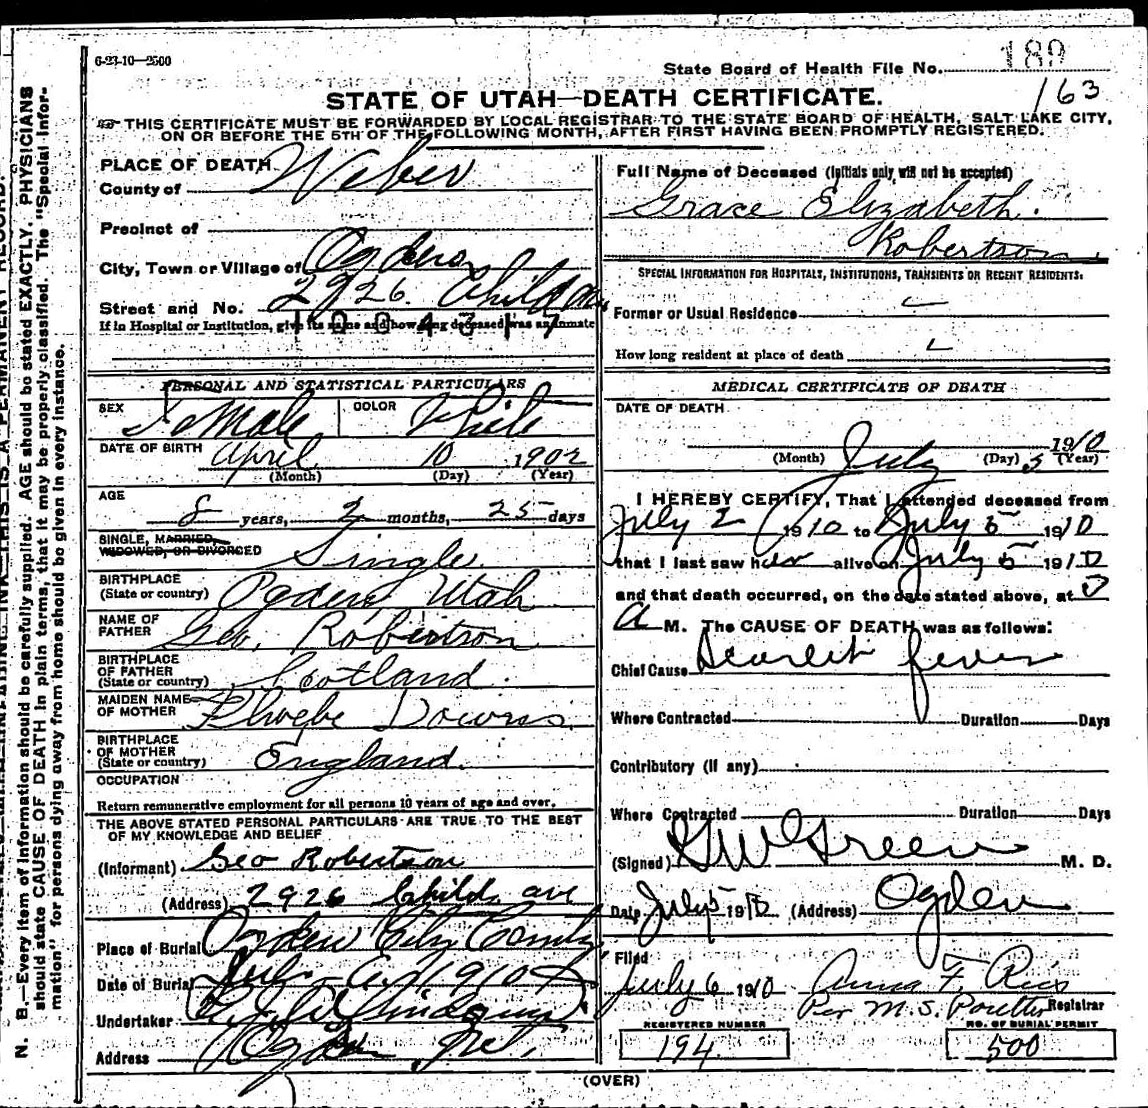 6-23-10—2500
State Board of Health File No. 189
163
STATE OF UTAH—DEATH CERTIFICATE.
THIS CERTIFICATE MUST BE FORWARDED BY LOCAL REGISTRAR TO THE STATE BOARD OF HEALTH, SALT LAKE CITY,
ON OR BEFORE THE 5TH OF THE FOLLOWING MONTH, AFTER FIRST HAVING BEEN PROMPTLY REGISTERED.
PLACE OF DEATH
County of Weber
Precinct of
City, Town or Village of Ogden
Street and No. 2926 Child Ave
If in Hospital or Institution, give its name and how long deceased was an inmate
PERSONAL AND STATISTICAL PARTICULARS
SEX Female COLOR White
DATE OF BIRTH April 10 1902
(Month) (Day) (Year)
AGE
8 years, 2 months, 25 days
SINGLE, MARRIED,
WIDOWED, OR DIVORCED Single
BIRTHPLACE
(State or country) Ogden Utah
NAME OF
FATHER Geo. Robertson
BIRTHPLACE
OF FATHER
(State or country) Scotland
MAIDEN NAME
OF MOTHER Phoebe
BIRTHPLACE
OF MOTHER
(State or country) England
OCCUPATION
Return remunerative employment for all persons 10 years of age and over.
THE ABOVE STATED PERSONAL PARTICULARS ARE TRUE TO THE BEST
OF MY KNOWLEDGE AND BELIEF
(Informant) Geo Robertson
(Address) 2926 Child ave
Place of Burial Ogden City
Date of Burial July 1910
Undertaker
Address Ogden
Full Name of Deceased (Initials only will not be accepted)
Grace Elizabeth
Robertson
SPECIAL INFORMATION FOR HOSPITALS, INSTITUTIONS, TRANSIENTS OR RECENT RESIDENTS.
Former or Usual Residence
How long resident at place of death
MEDICAL CERTIFICATE OF DEATH
DATE OF DEATH
July 5 1910
(Month) (Day) (Year)
I HEREBY CERTIFY, That I attended deceased from
July 2 1910 to July 5 1910
that I last saw her alive on July 5 1910
and that death occurred, on the date stated above, at
A M. The CAUSE OF DEATH was as follows:
Chief Cause Scarlet fever
Where Contracted Duration Days
Contributory (if any)
Where Contracted Duration Days
(Signed) G W Green M. D.
Date July 5 1910 (Address) Ogden
Filed
July 6 1910 Anna F. Ries
Per M. S. Poulter Registrar
REGISTERED NUMBER NO. OF BURIAL PERMIT
194 500
(OVER)
N. B.—Every item of information should be carefully supplied. AGE should be stated EXACTLY. PHYSICIANS
should state CAUSE OF DEATH in plain terms, that it may be properly classified. The "Special Infor-
mation" for persons dying away from home should be given in every instance.